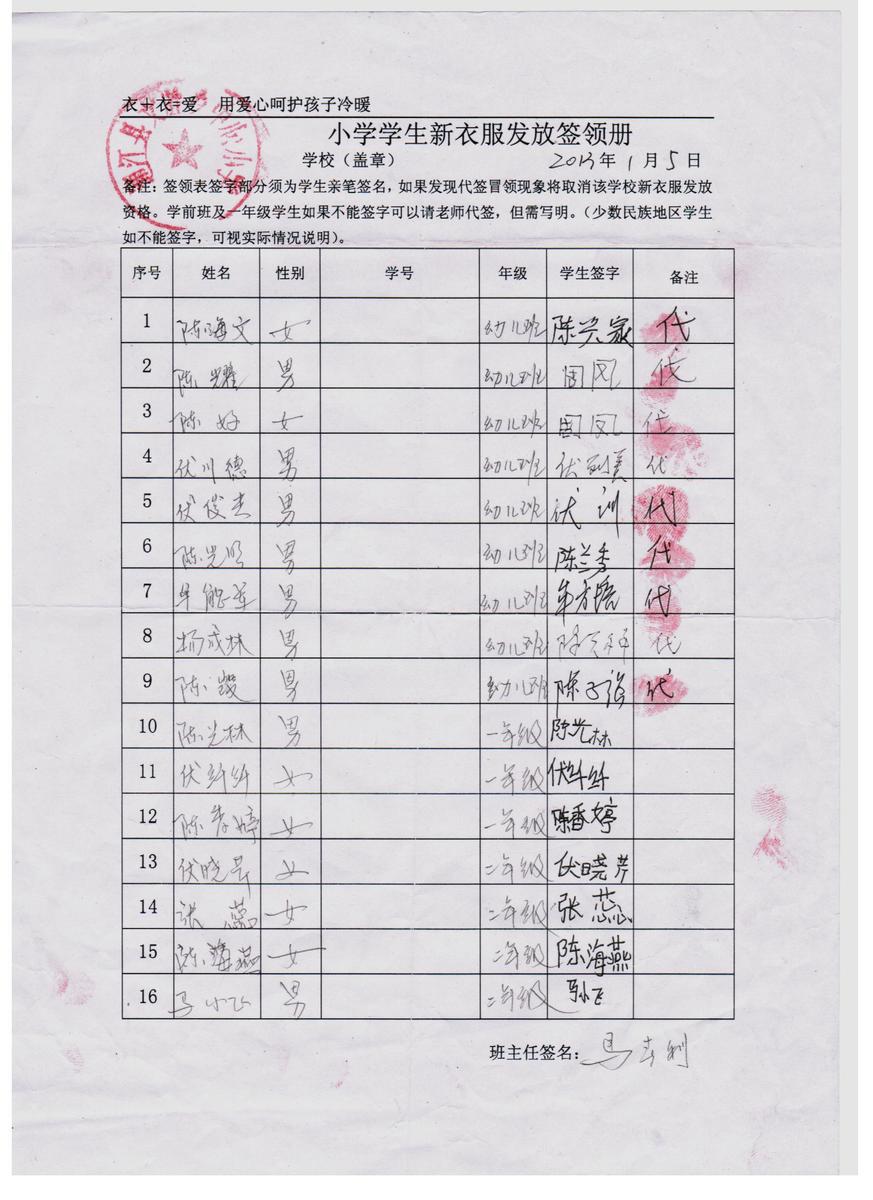 衣+衣=爱 用爱心呵护孩子冷暖
小学学生新衣服发放签领册
学校（盖章） 2013年1月5日
备注：签领表签字部分须为学生亲笔签名，如果发现代签冒领现象将取消该学校新衣服发放
资格。学前班及一年级学生如果不能签字可以请老师代签，但需写明。（少数民族地区学生
如不能签字，可视实际情况说明）。
序号 姓名 性别 学号 年级 学生签字 备注
1 陈海文 女 幼儿班 陈兴家 代
2 陈耀 男 幼儿班 闰凤 代
3 陈好 女 幼儿班 闰凤 代
4 伏川德 男 幼儿班 伏 代
5 伏俊杰 男 幼儿班 伏训 代
6 陈光明 男 幼儿班 陈兰秀 代
7 男 幼儿班 代
8 杨成林 男 幼儿班 陈 代
9 陈 男 幼儿班 陈子强 代
10 陈光林 男 一年级 陈光林
11 伏纤纤 女 一年级 伏纤纤
12 陈香婷 女 一年级 陈香婷
13 伏晓芹 女 二年级 伏晓芹
14 张蕊 女 二年级 张蕊
15 陈海燕 女 二年级 陈海燕
16 马小飞 男 二年级 马小飞
班主任签名：马